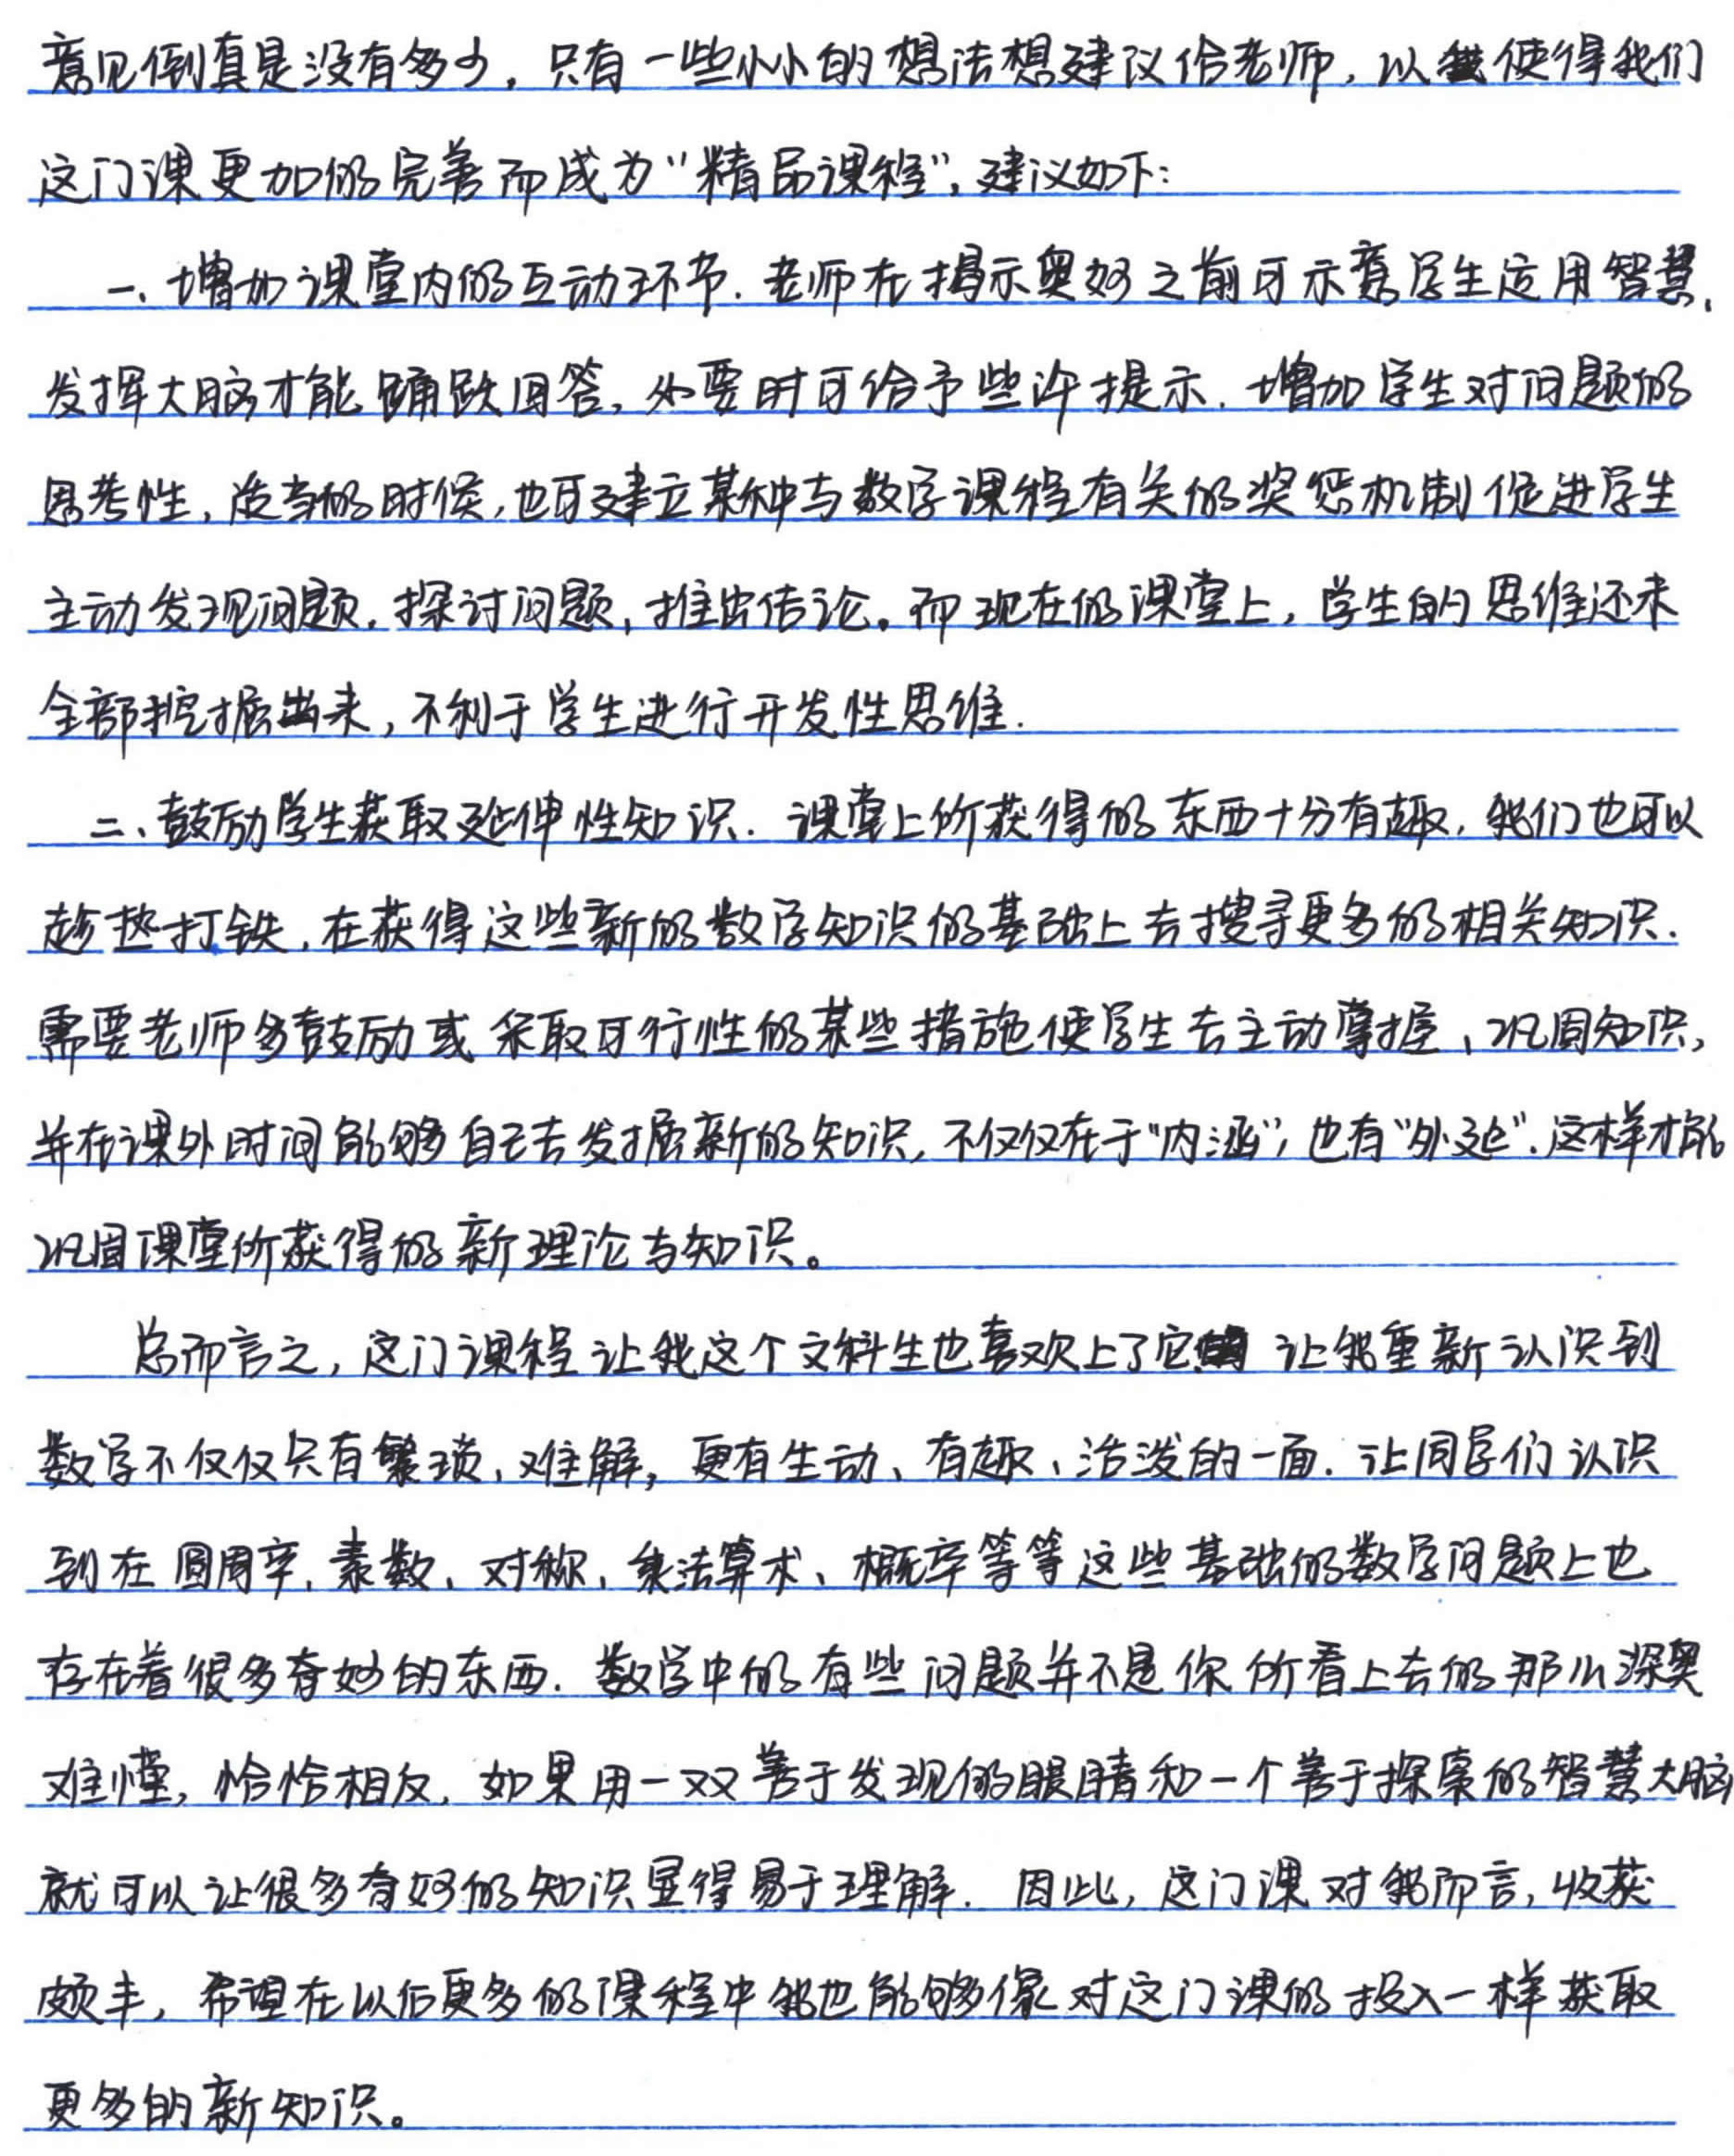 意见倒真是没有多少，只有一些小小的想法想建议给老师，以使得我们
这门课更加的完善而成为“精品课程”，建议如下：
一、增加课堂内的互动环节．老师在揭示奥妙之前可示意学生运用智慧，
发挥大脑才能踊跃回答，必要时可给予些许提示．增加学生对问题的
思考性，适当的时候，也可建立某种与数学课程有关的奖惩机制促进学生
主动发现问题，探讨问题，推出结论。而现在的课堂上，学生的思维还未
全部挖掘出来，不利于学生进行开发性思维．
二、鼓励学生获取延伸性知识．课堂上所获得的东西十分有趣，我们也可以
趁热打铁，在获得这些新的数学知识的基础上去搜寻更多的相关知识．
需要老师多鼓励或采取可行性的某些措施使学生去主动掌握、巩固知识，
并在课外时间能够自己去发掘新的知识，不仅仅在于“内涵”，也有“外延”．这样才能
巩固课堂所获得的新理论与知识。
总而言之，这门课程让我这个文科生也喜欢上了它 让我重新认识到
数学不仅仅只有繁琐、难解，更有生动、有趣、活泼的一面．让同学们认识
到在圆周率、素数、对称、乘法算术、概率等等这些基础的数学问题上也
存在着很多奇妙的东西．数学中的有些问题并不是你所看上去的那么深奥
难懂，恰恰相反，如果用一双善于发现的眼睛和一个善于探索的智慧大脑
就可以让很多奇妙的知识显得易于理解．因此，这门课对我而言，收获
颇丰，希望在以后更多的课程中我也能够像对这门课的投入一样获取
更多的新知识。